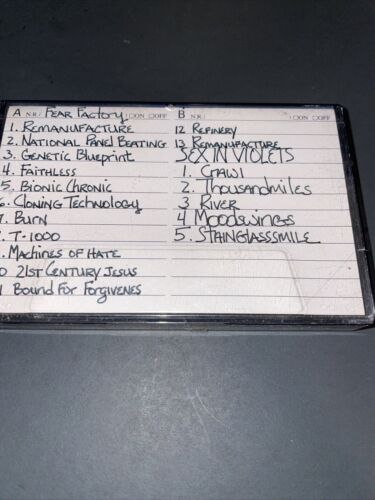 A N.R. Fear Factory ON OFF
1. Remanufacture
2. National Panel Beating
3. Genetic Blueprint
4. Faithless
5. Bionic Chronic
6. Cloning Technology
7. Burn
. T-1000
. Machines of Hate
0 21st Century Jesus
1 Bound For Forgivenes
B N.R. ON OFF
12 Refinery
13 Remanufacture
SEX IN VIOLETS
1. Crawl
2. Thousandmiles
3 River
4 Moodswings
5. Stainglasssmile